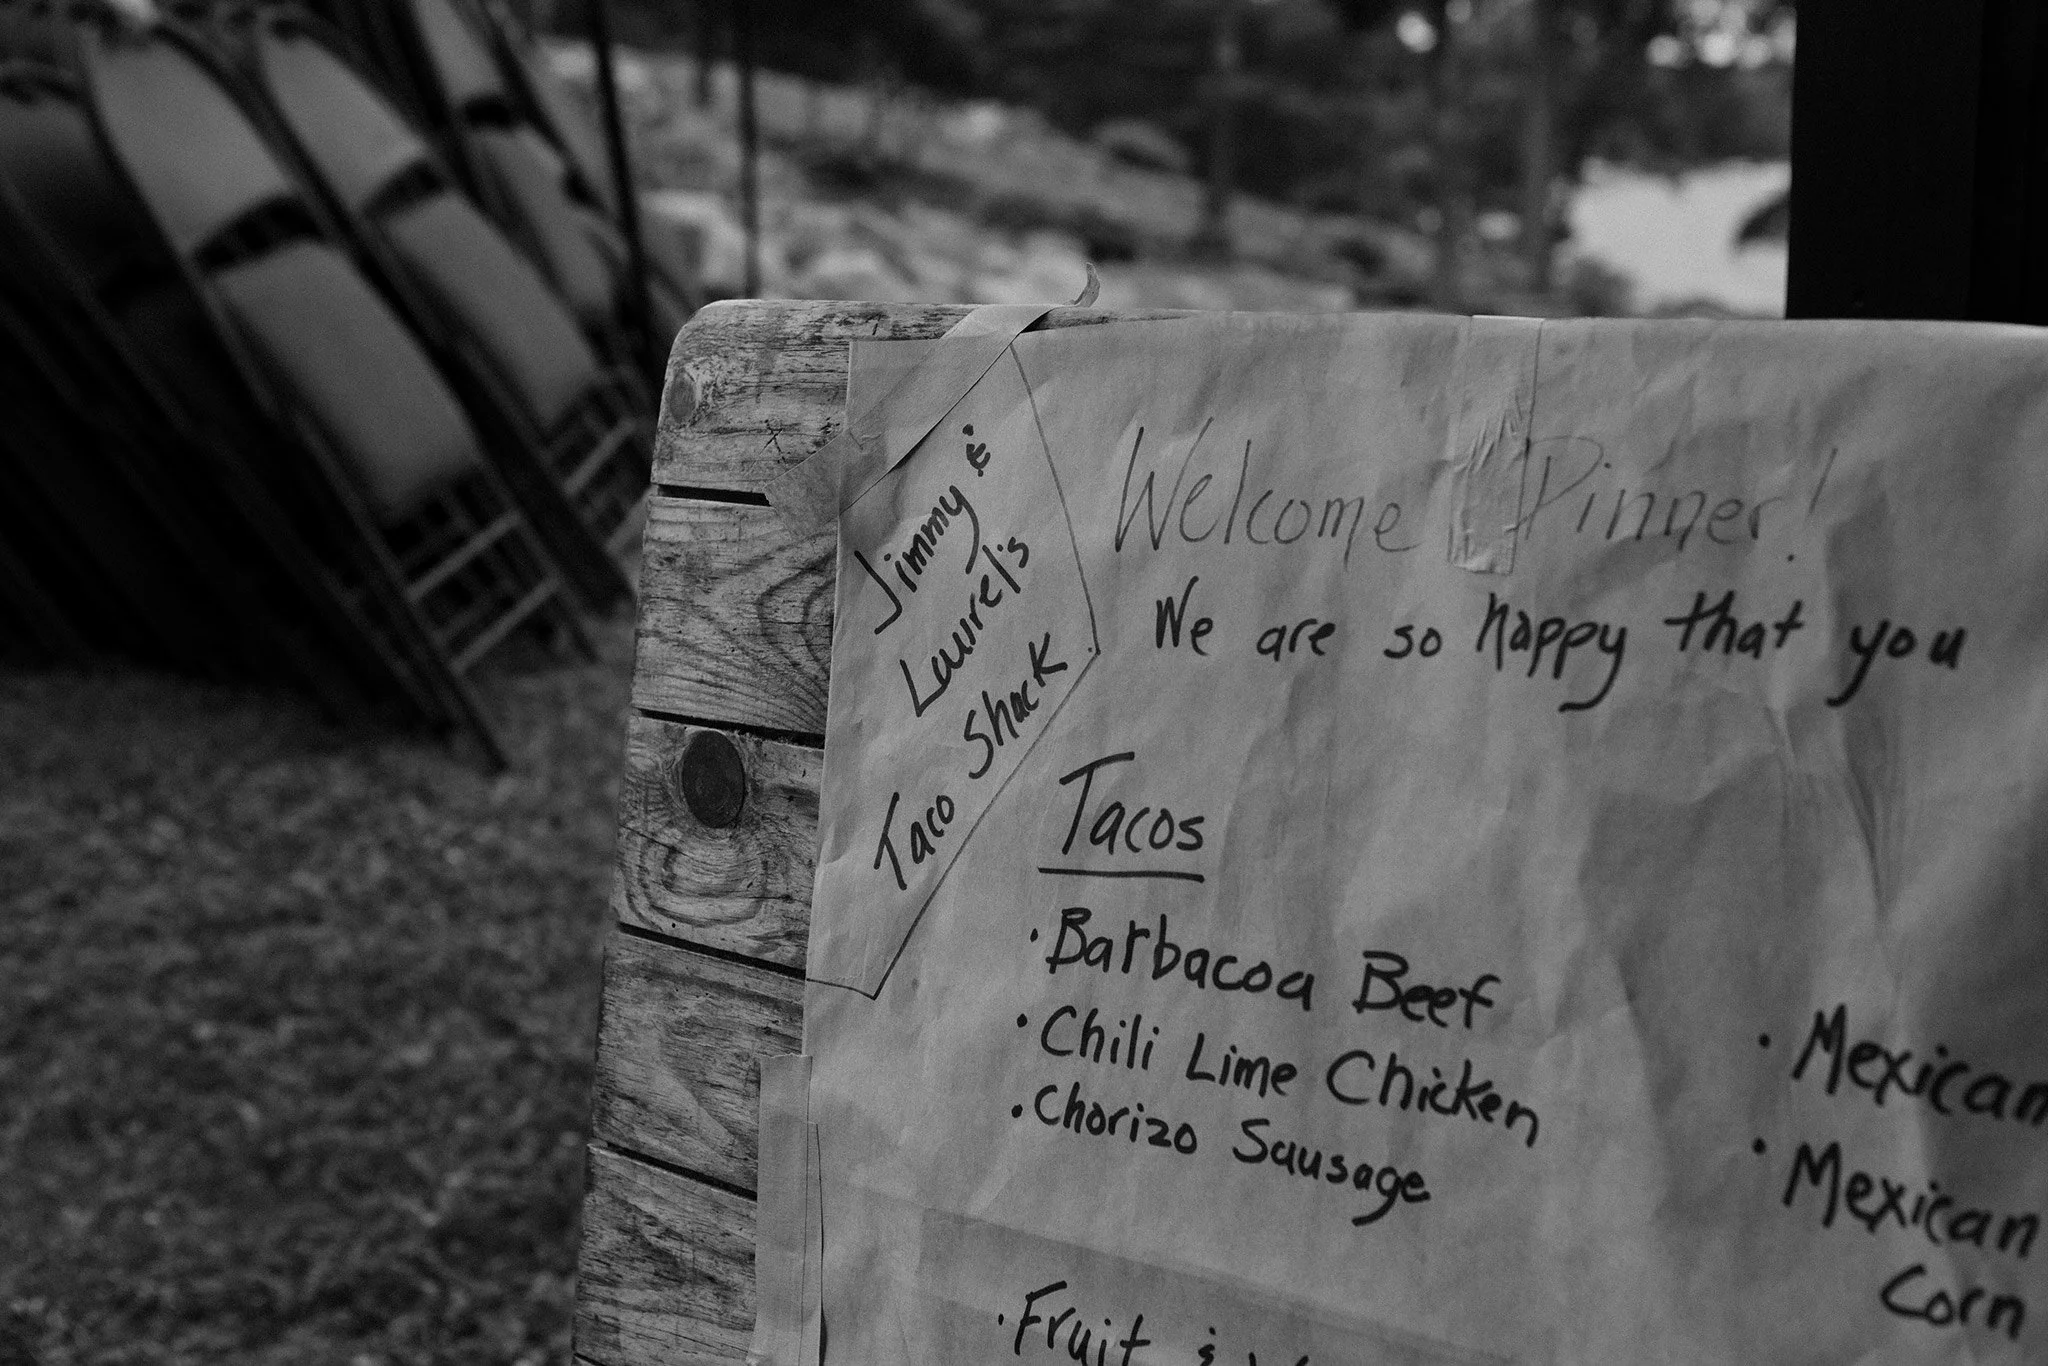 Jimmy &
Laurel's
Taco Shack
Welcome Dinner!
We are so happy that you
Tacos
• Barbacoa Beef
• Chili Lime Chicken
• Chorizo Sausage
• Mexican
• Mexican
Corn
• Fruit &